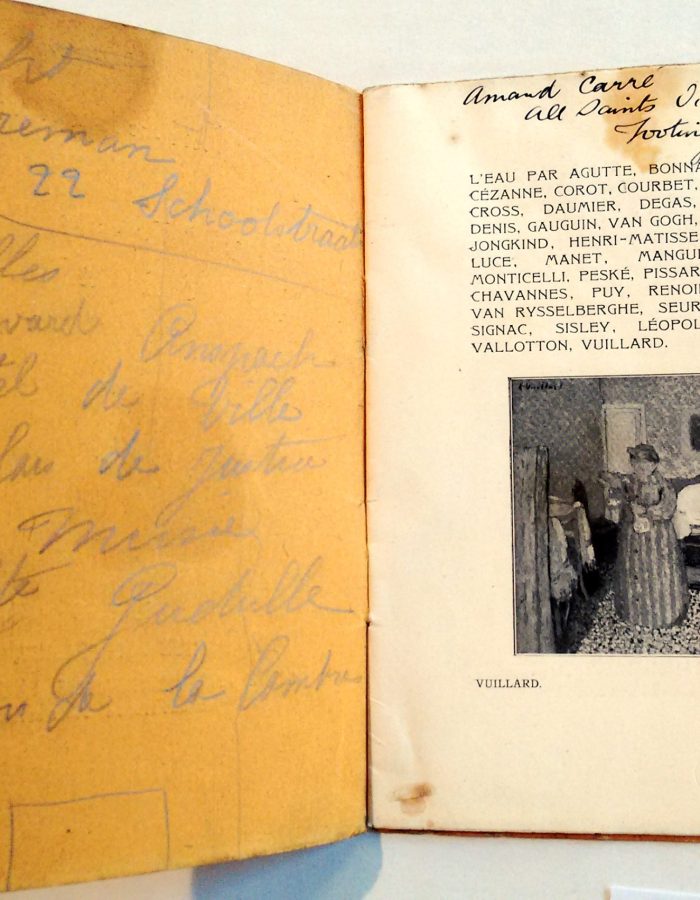 reman
22 Schoolstraat
lles
vard Anspach
tel de Ville
lais de Justice
Musée
te Gudulle
la Cambre
Amand Carré
All Saints
Tootin
L'EAU PAR AGUTTE, BONNA
CÉZANNE, COROT, COURBET,
CROSS, DAUMIER, DEGAS,
DENIS, GAUGUIN, VAN GOGH,
JONGKIND, HENRI-MATISSE
LUCE, MANET, MANGUI
MONTICELLI, PESKÉ, PISSAR
CHAVANNES, PUY, RENOI
VAN RYSSELBERGHE, SEUR
SIGNAC, SISLEY, LÉOPOL
VALLOTTON, VUILLARD.
VUILLARD.